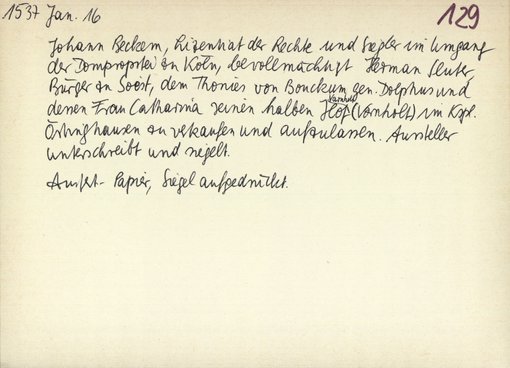 1537 Jan. 16
129
Johann Beckem, Lizentiat der Rechte und Siegler im Umgang
der Dompropstei zu Köln, bevollmächtigt Herman Sluter,
Bürger zu Soest, dem Thonies von Bonckum gen. Dolphus und
dessen Frau Catharina seinen halben Hof (Varnholt) im Kspl.
Östinghausen zu verkaufen und aufzulassen. Aussteller
unterschreibt und siegelt.
Ausf.- Papier, Siegel aufgedrückt.